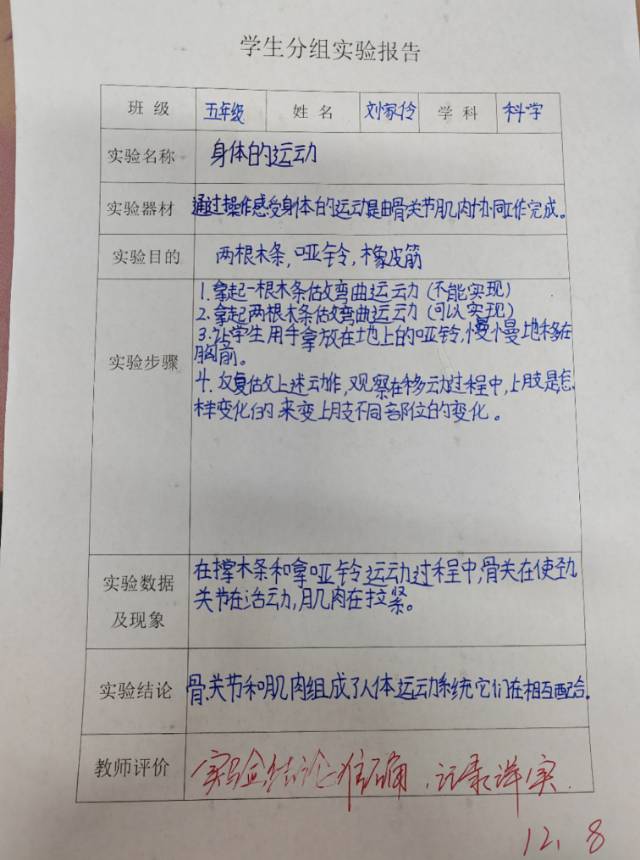 学生分组实验报告
班级 五年级 姓名 刘家伶 学科 科学
实验名称 身体的运动
实验器材 通过操作感受身体的运动是由骨关节肌肉协同工作完成。
实验目的 两根木条,哑铃,橡皮筋
实验步骤
1.拿起一根木条做弯曲运动(不能实现)
2.拿起两根木条做弯曲运动(可以实现)
3.让学生用手拿放在地上的哑铃,慢慢地移在
胸前。
4.反复做上述动作,观察在移动过程中,上肢是怎
样变化的来变上肢不同部位的变化。
实验数据
及现象
在撑木条和拿哑铃运动过程中,骨关在使劲
关节在活动,肌肉在拉紧。
实验结论 骨.关节和肌肉组成了人体运动系统它们在相互配合.
教师评价 实验结论准确,记录详实.
12.8